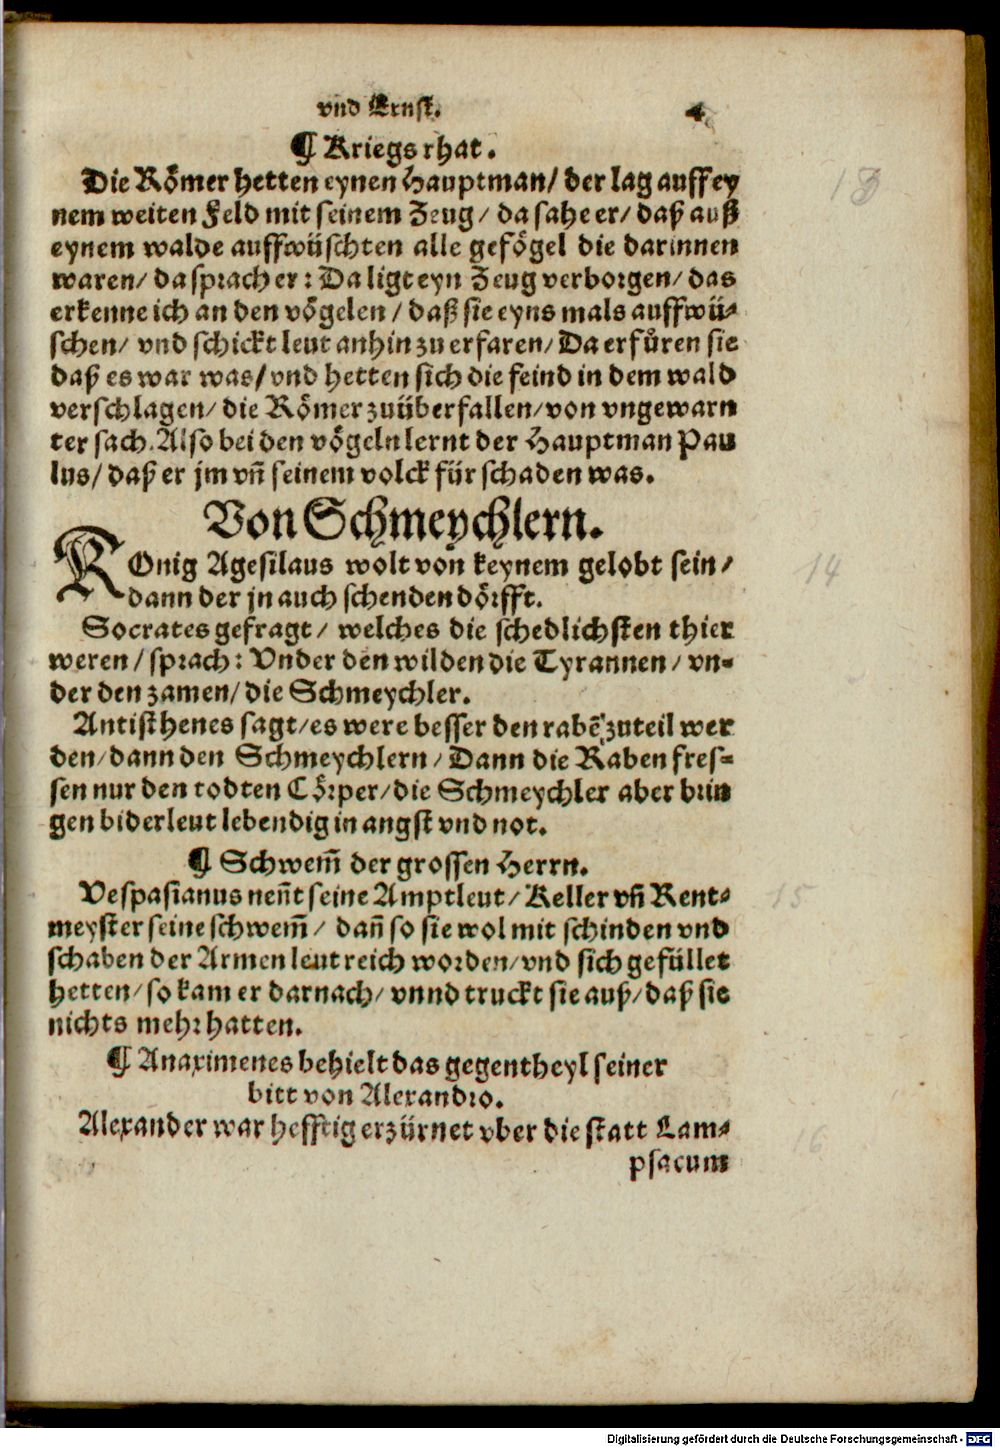 vnd Ernst. 4
¶ Kriegs rhat.
Die Roͤmer hetten eynen Hauptman/ der lag auff ey
nem weiten Feld mit seinem Zeug/ da sahe er/ daß auß
eynem walde auffwuͤschten alle gefoͤgel die darinnen
waren/ da sprach er: Da ligt eyn Zeug verborgen/ das
erkenne ich an den voͤgelen/ daß sie eyns mals auffwuͤ-
schen/ vnd schickt leut anhin zu erfaren/ Da erfůren sie
daß es war was/ vnd hetten sich die feind in dem wald
verschlagen/ die Roͤmer zuͤberfallen/ von vngewarn
ter sach. Also bei den voͤgeln lernt der Hauptman Pau
lus/ daß er jm vñ seinem volck fuͤr schaden was.
Von Schmeychlern.
KOnig Agesilaus wolt von keynem gelobt sein/
dann der jn auch schenden doͤrfft.
Socrates gefragt/ welches die schedlichsten thier
weren/ sprach: Vnder den wilden die Tyrannen/ vn-
der den zamen/ die Schmeychler.
Antisthenes sagt/ es were besser den rabẽ zuteil wer
den/ dann den Schmeychlern/ Dann die Raben fres-
sen nur den todten Coͤrper/ die Schmeychler aber brin
gen biderleut lebendig in angst vnd not.
¶ Schwem̃ der grossen Herrn.
Vespasianus neñt seine Amptleut/ Keller vñ Rent-
meyster seine schwem̃/ dañ so sie wol mit schinden vnd
schaben der Armen leut reich worden/ vnd sich gefuͤllet
hetten/ so kam er darnach/ vnnd truckt sie auß/ daß sie
nichts mehr hatten.
¶ Anaximenes behielt das gegentheyl seiner
bitt von Alexandro.
Alexander war hefftig erzuͤrnet vber die statt Lam-
psacum
13
14
15
16
Digitalisierung gefördert durch die Deutsche Forschungsgemeinschaft - DFG